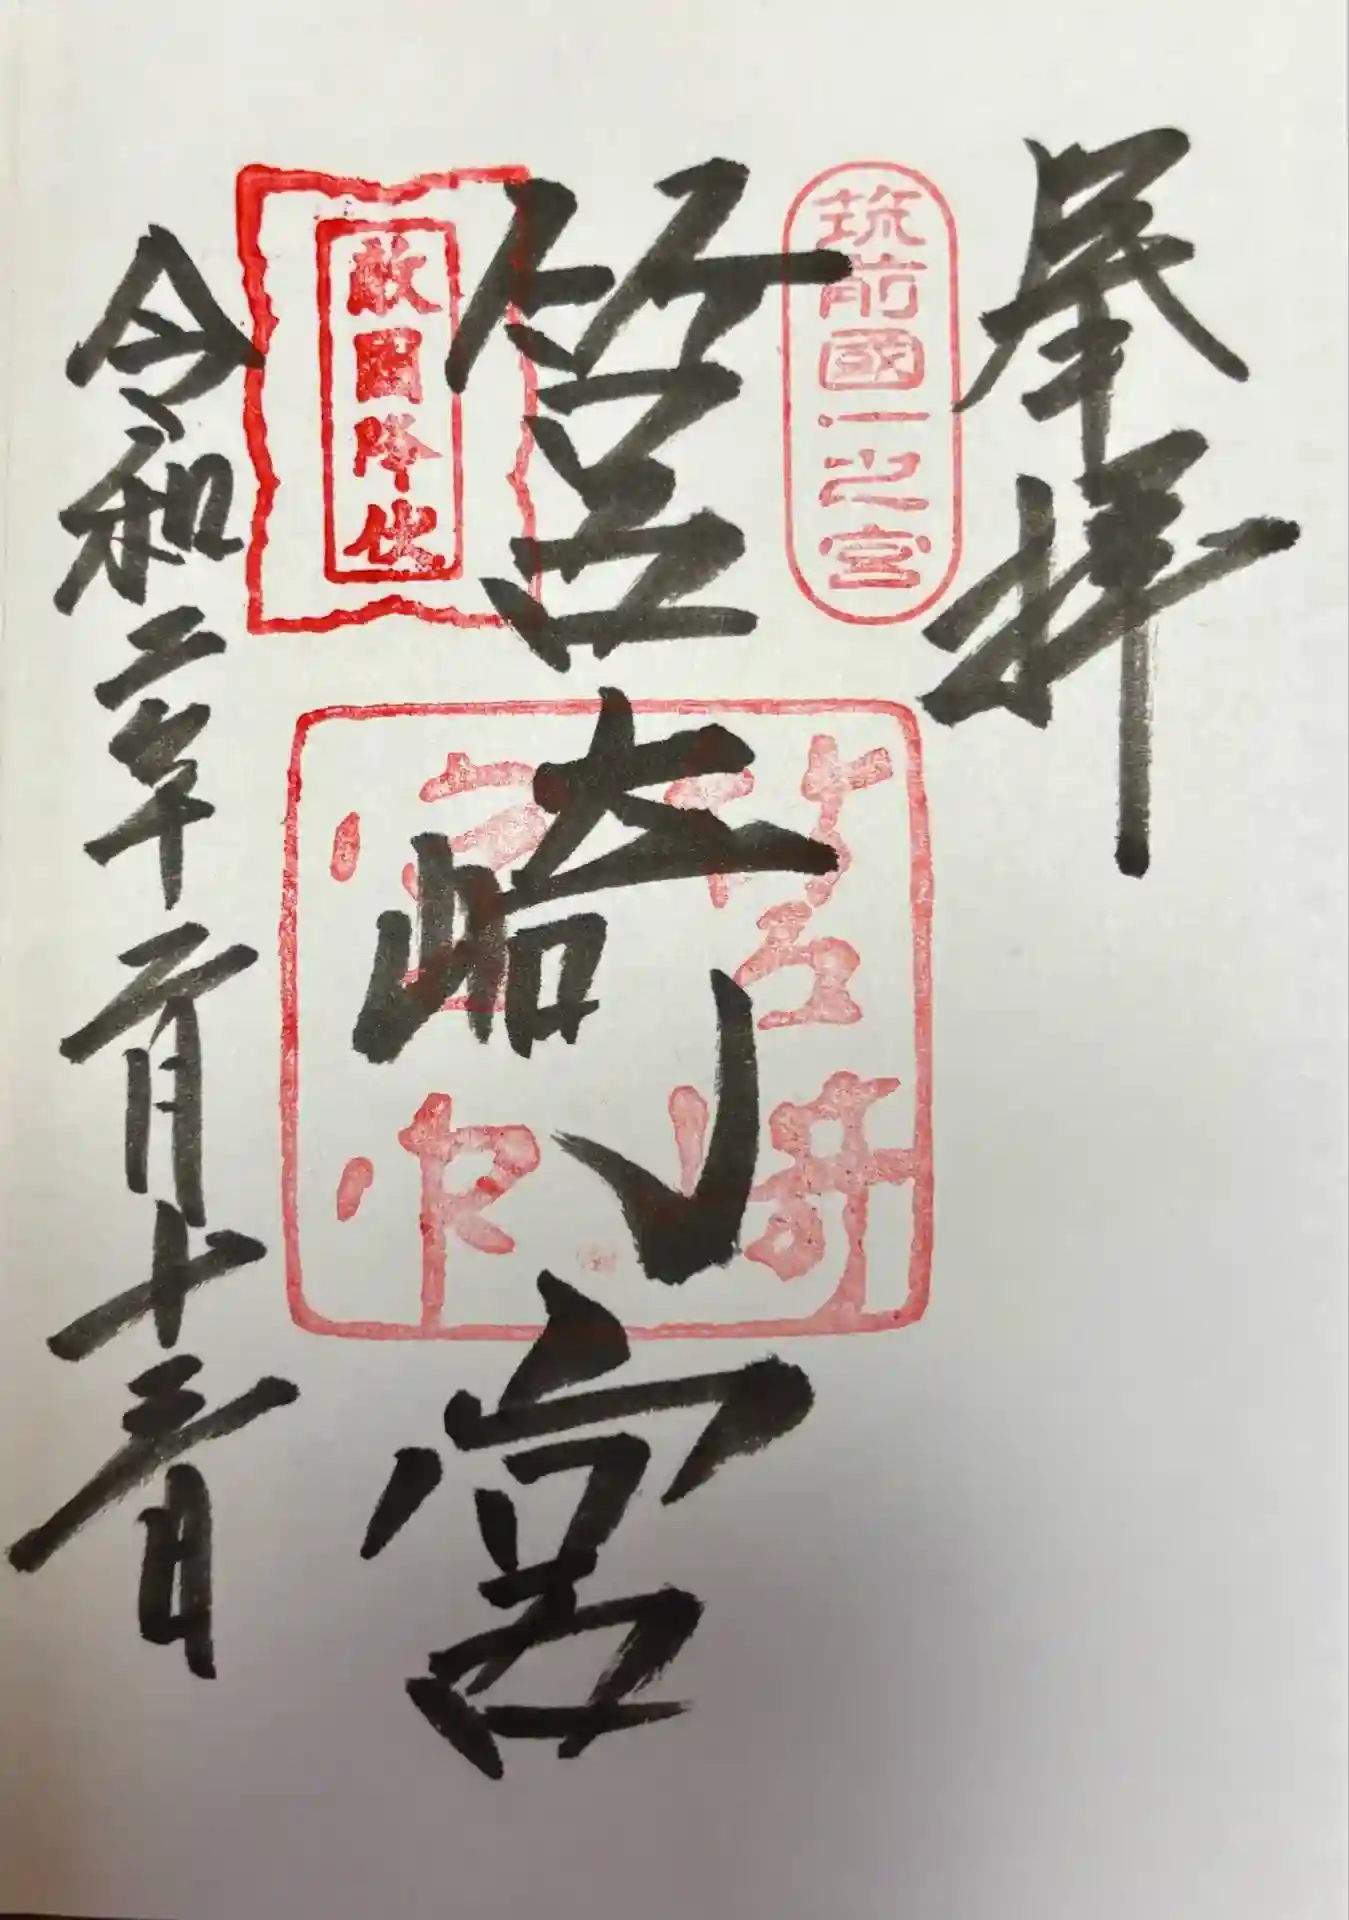 奉拝
筑前國一之宮
筥崎宮
敵國降伏
筥崎
宮印
令和二年二月十三日